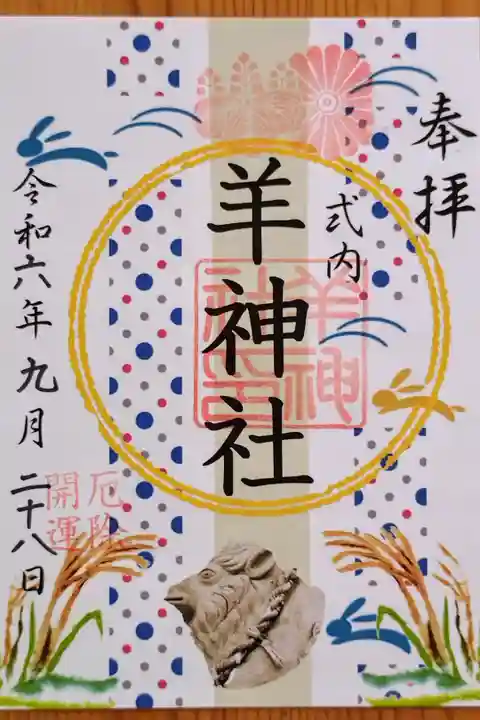 奉拝
式内
羊神社
羊神
社印
厄除
開運
令和六年九月二十八日